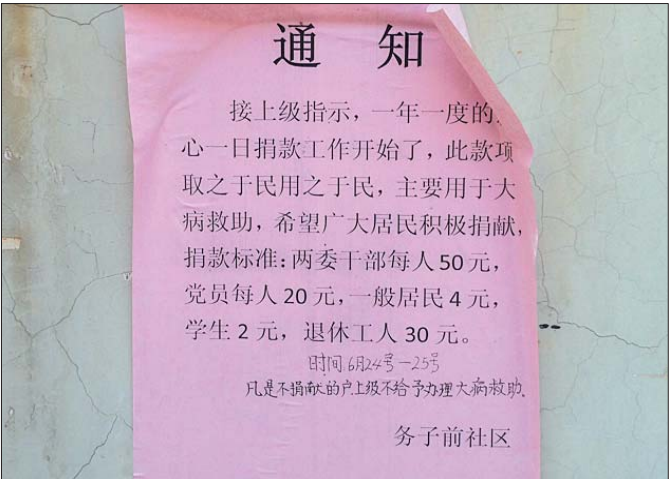 通 知
接上级指示，一年一度的
心一日捐款工作开始了，此款项
取之于民用之于民，主要用于大
病救助，希望广大居民积极捐献，
捐款标准：两委干部每人 50 元，
党员每人 20 元，一般居民 4 元，
学生 2 元，退休工人 30 元。
时间6月24号—25号
凡是不捐献的户上级不给予办理大病救助.
务子前社区